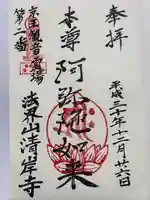 奉拝
平成三十年十二月廿六日
本尊 阿弥陀如来
京洛観音霊場
第二番
法界山清岸寺